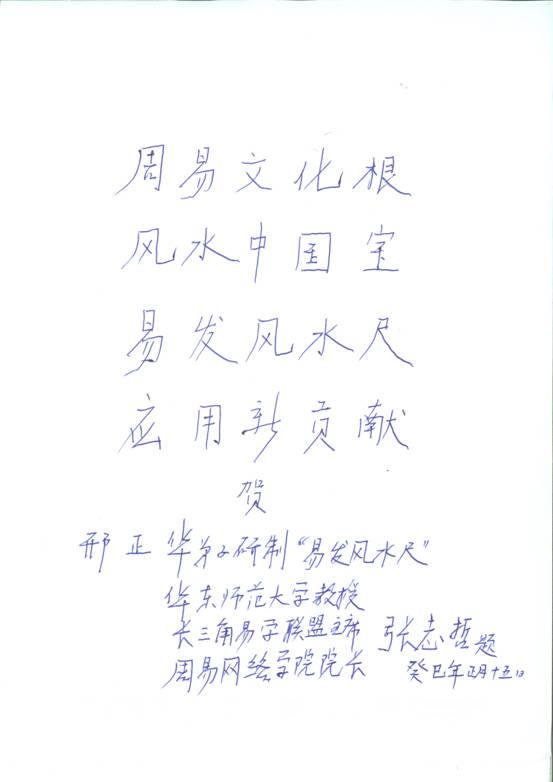 周易文化根
风水中国宝
易发风水尺
应用新贡献
贺
邢正华弟子研制“易发风水尺”
华东师范大学教授
长三角易学联盟主席 张志哲题
周易网络学院院长 癸巳年正月十五日